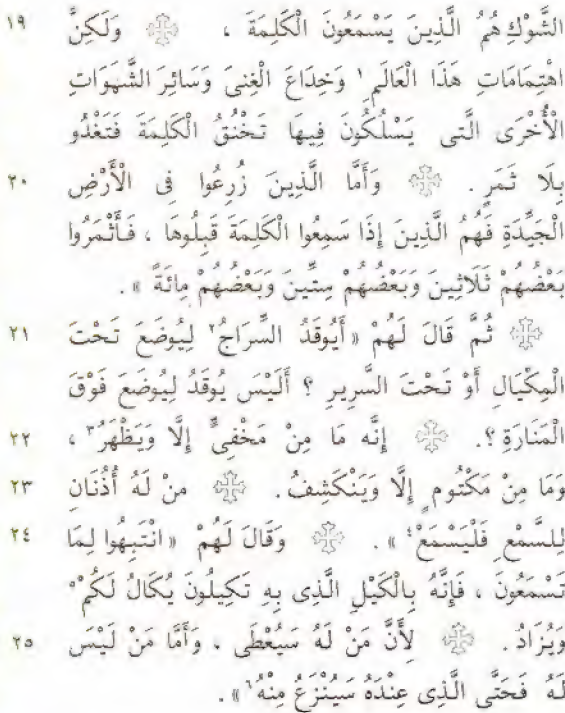 الشَّوْكِ هُمُ الَّذِينَ يَسْمَعُونَ الْكَلِمَةَ ، وَلَكِنَّ ١٩
اهْتِمَامَاتِ هَذَا الْعَالَمِ ١ وَخِدَاعَ الْغِنَى وَسَائِرَ الشَّهَوَاتِ
الْأُخْرَى الَّتِى يَسْلُكُونَ فِيهَا تَخْنُقُ الْكَلِمَةَ فَتَغْدُو
بِلَا ثَمَرٍ . وَأَمَّا الَّذِينَ زُرِعُوا فِى الْأَرْضِ ٢٠
الْجَيِّدَةِ فَهُمُ الَّذِينَ إِذَا سَمِعُوا الْكَلِمَةَ قَبِلُوهَا ، فَأَثْمَرُوا
بَعْضُهُمْ ثَلَاثِينَ وَبَعْضُهُمْ سِتِّينَ وَبَعْضُهُمْ مِائَةً » .
ثُمَّ قَالَ لَهُمْ « أَيُوقَدُ السِّرَاجُ ٢ لِيُوضَعَ تَحْتَ ٢١
الْمِكْيَالِ أَوْ تَحْتَ السَّرِيرِ ؟ أَلَيْسَ يُوقَدُ لِيُوضَعَ فَوْقَ
الْمَنَارَةِ ؟. إِنَّه مَا مِنْ مَخْفِىٍّ إِلَّا وَيَظْهَرُ ٣ ، ٢٢
وَمَا مِنْ مَكْتُومٍ إِلَّا وَيَنْكَشِفُ. مَنْ لَهُ أُذُنَانِ ٢٣
لِلسَّمْعِ فَلْيَسْمَعْ ٤ » . وَقَالَ لَهُمْ « انْتَبِهُوا لِمَا ٢٤
تَسْمَعُونَ ، فَإِنَّهُ بِالْكَيْلِ الَّذِى بِهِ تَكِيلُونَ يُكَالُ لَكُمْ ٥
وَيُزَادُ. لِأَنَّ مَنْ لَهُ سَيُعْطَى ، وَأَمَّا مَنْ لَيْسَ ٢٥
لَهُ فَحَتَّى الَّذِى عِنْدَهُ سَيُنْزَعُ مِنْهُ ٦ » .